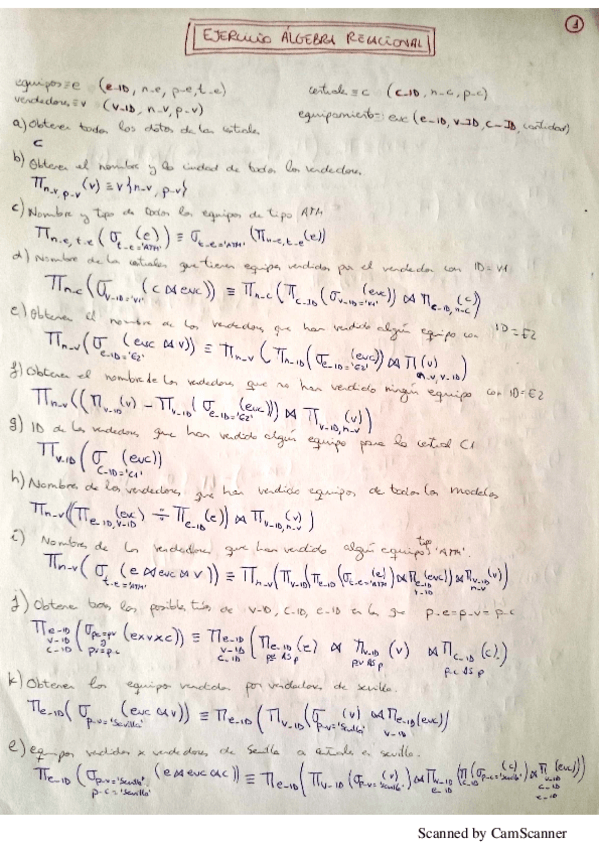 1
EJERCICIO ÁLGEBRA RELACIONAL
equipos ≡ e (e_ID, n_e, p_e, t_e)
centrales ≡ c (c_ID, n_c, p_c)
vendedores ≡ v (v_ID, n_v, p_v)
equipamiento ≡ evc (e_ID, v_ID, c_ID, cantidad)
a) Obtener todos los datos de las centrales
c
b) Obtener el nombre y la ciudad de todos los vendedores.
Π n_v, p_v (v) ≡ v {n_v, p_v}
c) Nombre y tipo de todos los equipos de tipo ATM
Π n_e, t_e (σ t_e='ATM' (e)) ≡ σ t_e='ATM' (Π n_e, t_e (e))
d) Nombre de las centrales que tienen equipos vendidos por el vendedor con ID=V1
Π n_c (σ v_ID='V1' (c ⋈ evc)) ≡ Π n_c (Π c_ID (σ v_ID='V1' (evc)) ⋈ Π c_ID, n_c (c))
e) Obtener el nombre de los vendedores que han vendido algún equipo con ID=E2
Π n_v (σ e_ID='E2' (evc ⋈ v)) ≡ Π n_v (Π v_ID (σ e_ID='E2' (evc)) ⋈ Π n_v, v_ID (v))
f) Obtener el nombre de los vendedores que no han vendido ningún equipo con ID=E2
Π n_v ((Π v_ID (v) − Π v_ID (σ e_ID='E2' (evc))) ⋈ Π v_ID, n_v (v))
g) ID de los vendedores que han vendido algún equipo para la central C1
Π v_ID (σ c_ID='C1' (evc))
h) Nombres de los vendedores que han vendido equipos de todos los modelos
Π n_v ((Π e_ID, v_ID (evc) ÷ Π e_ID (e)) ⋈ Π v_ID, n_v (v))
i) Nombres de los vendedores que han vendido algún equipo tipo 'ATM'.
Π n_v (σ t_e='ATM' (e ⋈ evc ⋈ v)) ≡ Π n_v (Π v_ID (Π e_ID (σ t_e='ATM' (e)) ⋈ Π e_ID v_ID (evc)) ⋈ Π v_ID n_v (v))
j) Obtener todas las posibles tríos de v_ID, c_ID, e_ID en los que p_e=p_v=p_c
Π e_ID v_ID c_ID (σ pe=pv y pv=pc (e x v x c)) ≡ Π e_ID v_ID c_ID (Π e_ID pe AS p (e) ⋈ Π v_ID pv AS p (v) ⋈ Π c_ID p_c AS p (c))
k) Obtener los equipos vendidos por vendedores de sevilla.
Π e_ID (σ p_v='Sevilla' (evc ⋈ v)) ≡ Π e_ID (Π v_ID (σ p_v='Sevilla' (v) ⋈ Π e_ID v_ID (evc))
l) equipos vendidos x vendedores de Sevilla a centrales en sevilla.
Π e_ID (σ p_v='Sevilla' p_c='Sevilla' (e ⋈ evc ⋈ c)) ≡ Π e_ID (Π v_ID (σ p_v='Sevilla' (v)) ⋈ Π v_ID e_ID (Π c_ID (σ p_c='Sevilla' (c)) ⋈ Π v_ID c_ID e_ID (evc)))
Scanned by CamScanner